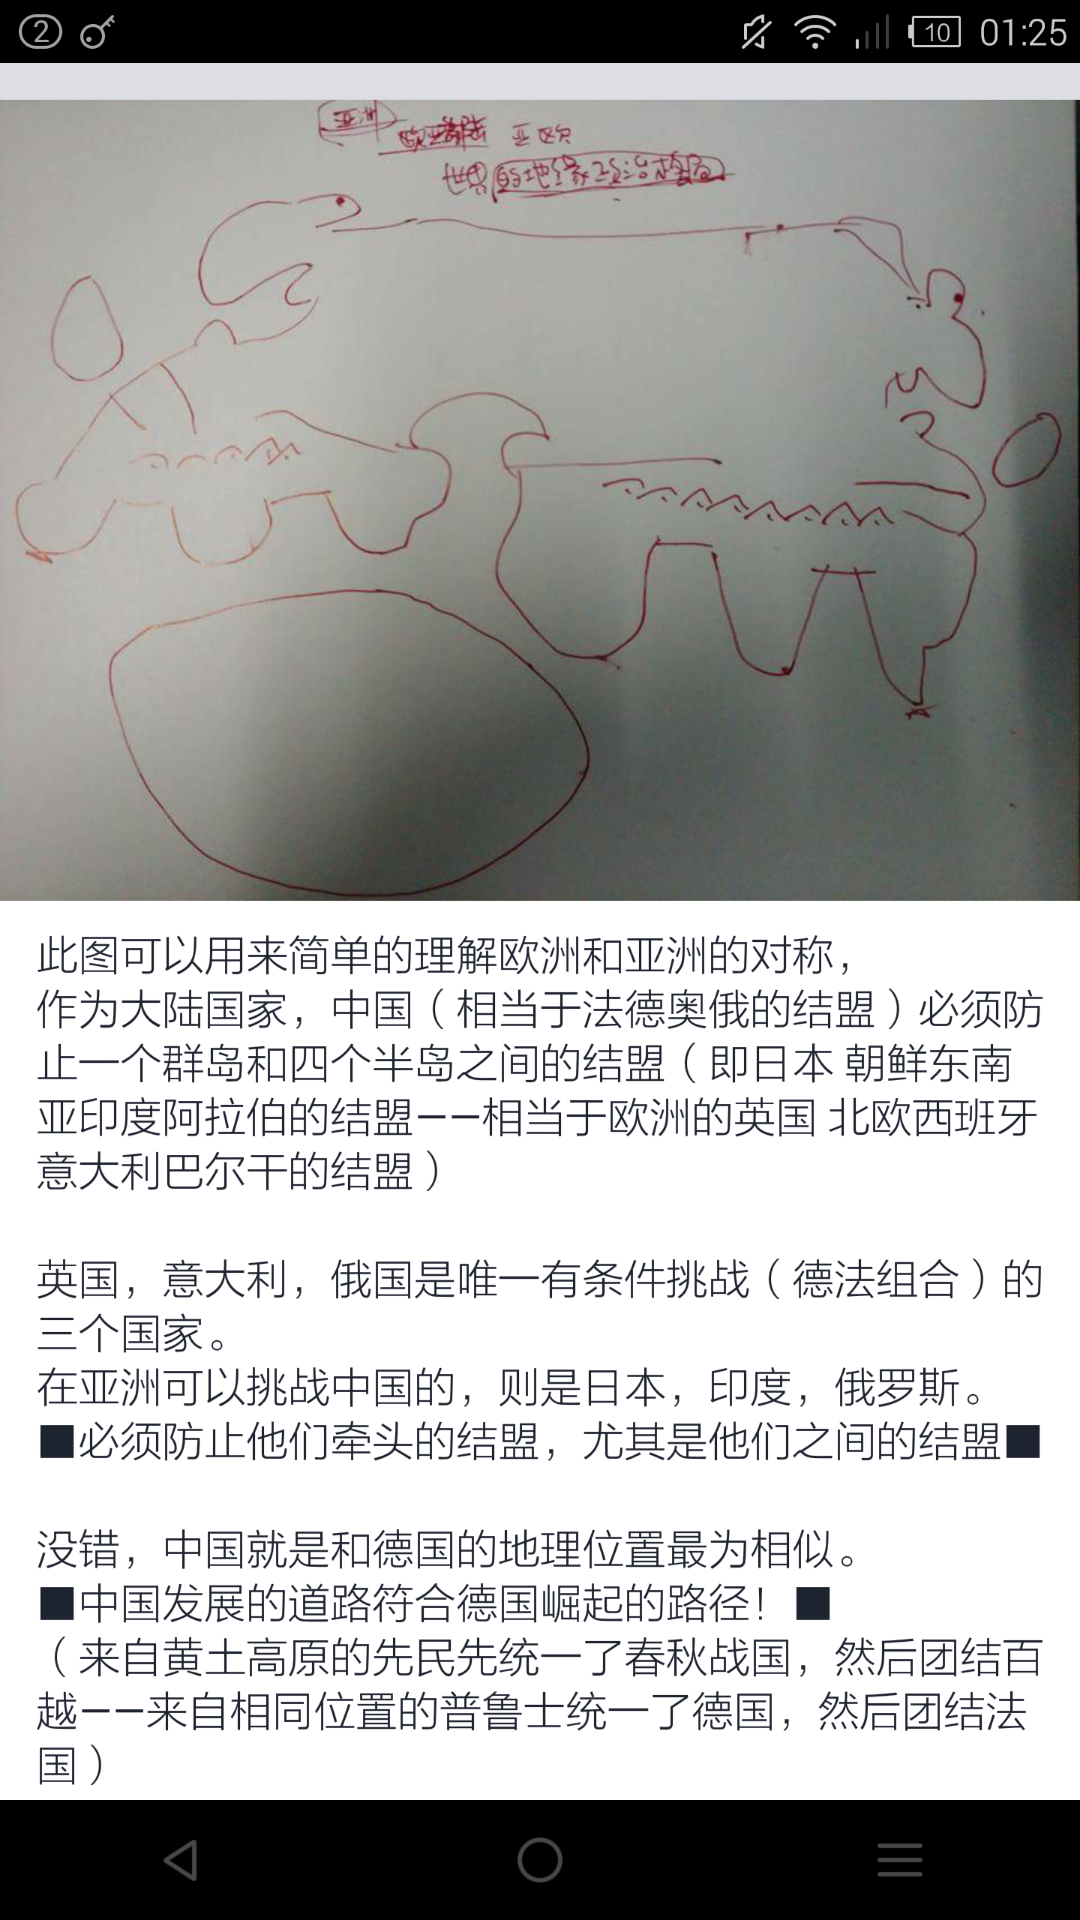 2
10
01:25
亚洲
亚欧
世界的地缘政治格局
此图可以用来简单的理解欧洲和亚洲的对称，
作为大陆国家，中国（相当于法德奥俄的结盟）必须防
止一个群岛和四个半岛之间的结盟（即日本 朝鲜东南
亚印度阿拉伯的结盟——相当于欧洲的英国 北欧西班牙
意大利巴尔干的结盟）
英国，意大利，俄国是唯一有条件挑战（德法组合）的
三个国家。
在亚洲可以挑战中国的，则是日本，印度，俄罗斯。
■必须防止他们牵头的结盟，尤其是他们之间的结盟■
没错，中国就是和德国的地理位置最为相似。
■中国发展的道路符合德国崛起的路径！■
（来自黄土高原的先民先统一了春秋战国，然后团结百
越——来自相同位置的普鲁士统一了德国，然后团结法
国）